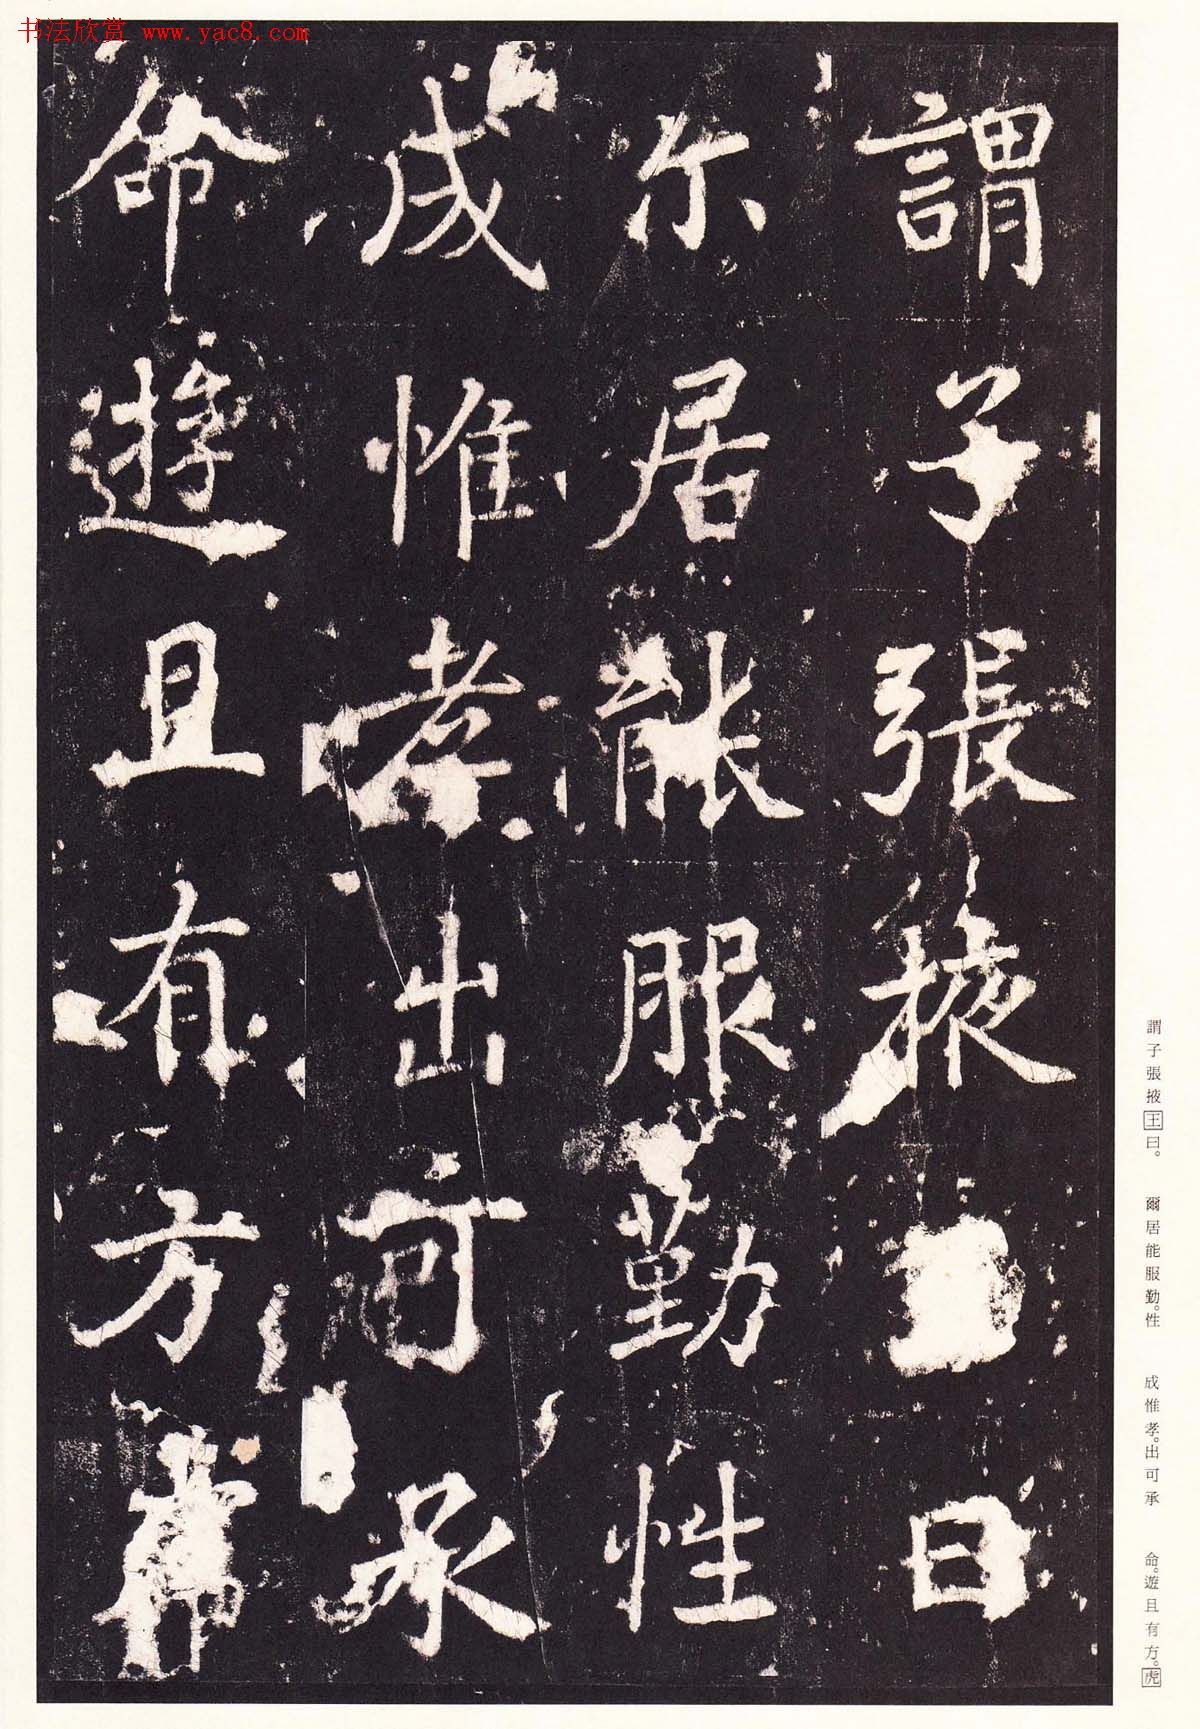 书法欣赏 www.yac8.com
謂子張掖曰
尔居能服勤性
成惟孝出可承
命遊且有方
謂子張掖王曰。 爾居能服勤。性 成惟孝。出可承 命。遊且有方。虎